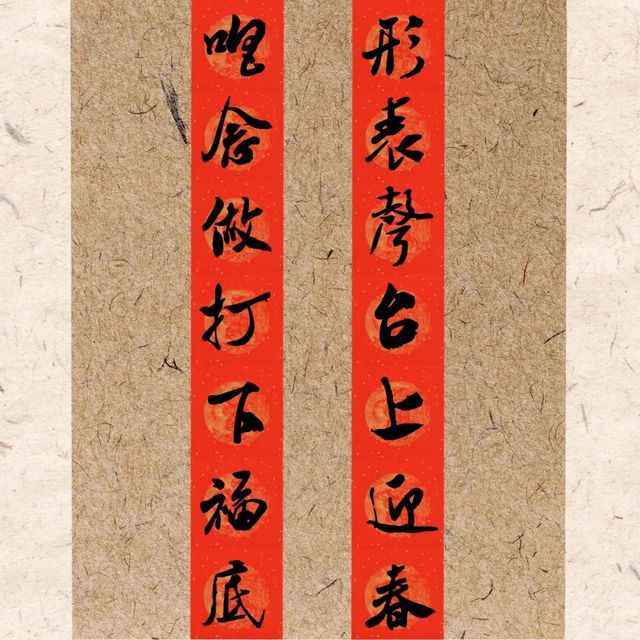 形表聲台上迎春
唱念做打下福底